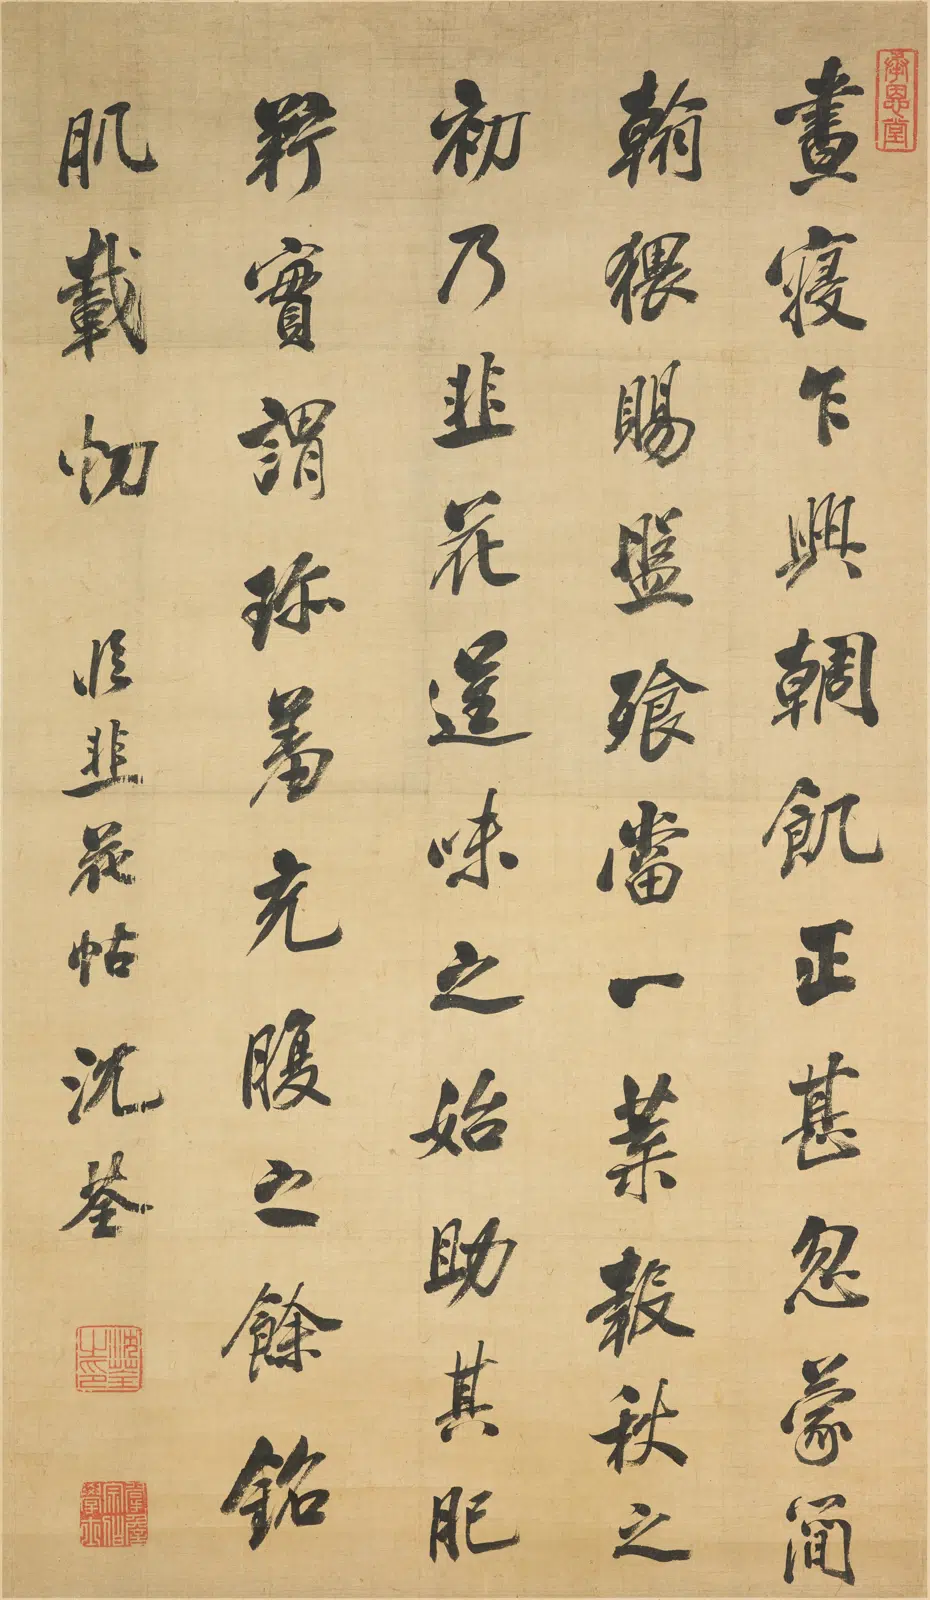 晝寢乍興輖飢正甚忽蒙簡
翰猥賜盤飧當一葉報秋之
初乃韭花逞味之始助其肥
羜實謂珍羞充腹之餘銘
肌載切 臨韭花帖沈荃
沈荃之印